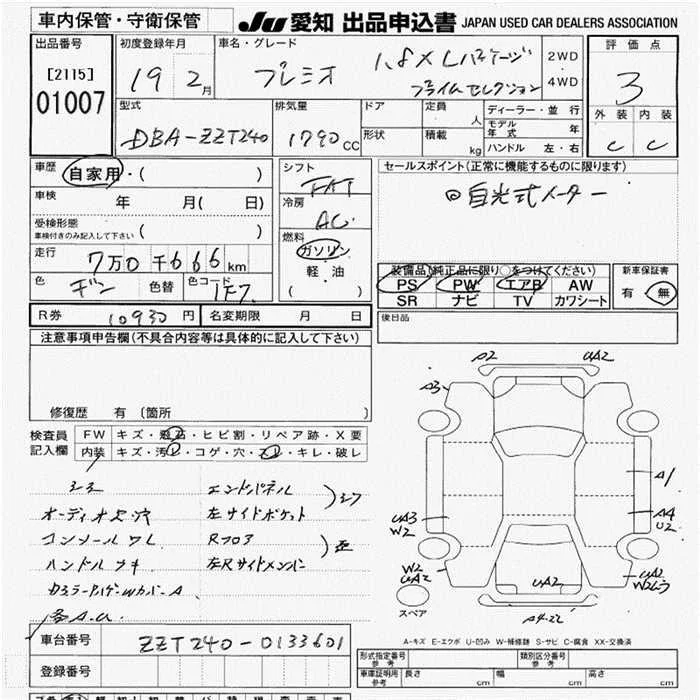 車内保管・守衛保管
JU 愛知 出品申込書 JAPAN USED CAR DEALERS ASSOCIATION
出品番号
[2115]
01007
初度登録年月
19年2月
車名・グレード
プレミオ
1.8X Lパッケージ
プライムセレクション
2WD
4WD
評価点
3
外装 内装
C C
型式
DBA-ZZT240
排気量
1790cc
ドア
形状
定員 人
積載 kg
ディーラー・並行
モデル年式 年
ハンドル 左・右
車歴
自家用・( )
車検 年 月( 日)
受検形態
車検付きのみ記入して下さい ( )
走行
7万0千666km
色
ギン
色替
色コード
1F7
シフト
FAT
冷房
AC
燃料
ガソリン
軽油
( )
セールスポイント(正常に機能するものに限ります)
◎自光式メーター
装備品(純正品に限り○をつけてください)
PS PW エアB AW
SR ナビ TV カワシート
新車保証書
有 無
R券 10930円
名変期限 月 日
後日品
注意事項申告欄(不具合内容等は具体的に記入して下さい)
修復歴 有 〔箇所 〕
検査員
記入欄
FW キズ・飛石・ヒビ割・リペア跡・X要
内装 キズ・汚レ・コゲ・穴・スレ・キレ・破レ
エンドパネル
左サイドポケット
Rフロア
左Rサイドメンバー
オーディオ
コンソール
ハンドル
A2 UA2
A3
A1
A4
U2
UA3
W2
W2
UA2
UA2
UA2
A4-22
スペア
A-キズ E-エクボ U-凹み W-補修跡 S-サビ C-腐食 XX-交換済
車台番号 ZZT240-0133601
登録番号
形式指定番号
参考
類別区分番号
参考
車庫証明用
参考
長さ cm 幅 cm 高さ cm